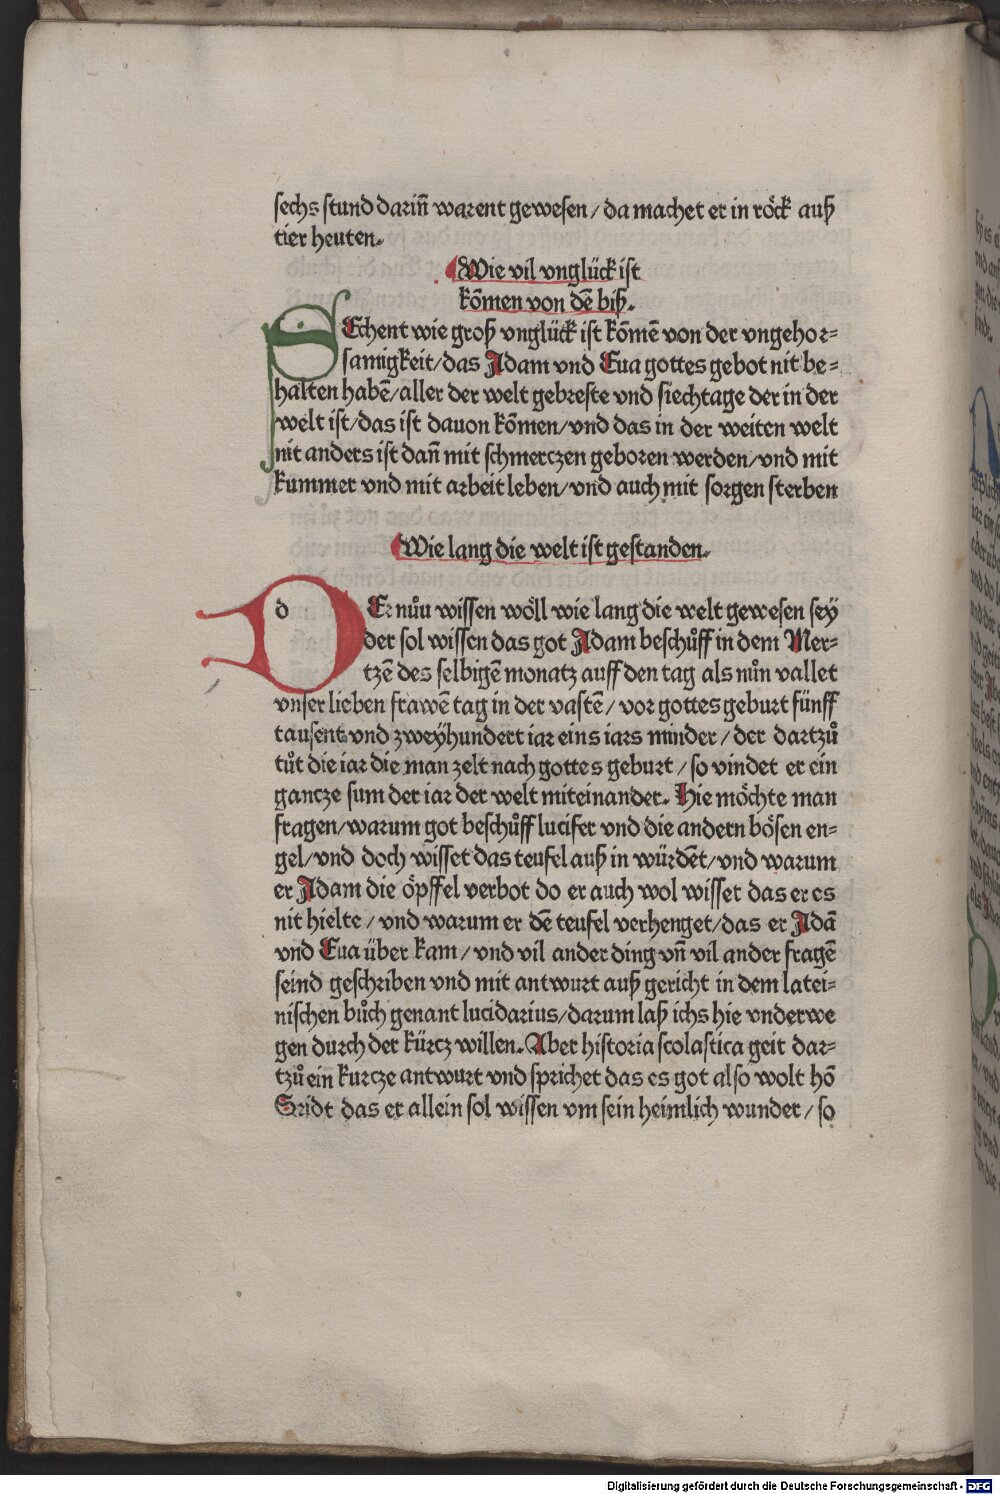 sechs stund darin̄ warent gewesen/da machet er in röck auß
tier heuten.
Wie vil vnglück ist
kōmen von dē biß.
SEchent wie groß vnglück ist kōmē von der vngehor=
samigkeit/das Adam vnd Eua gottes gebot nit be=
halten habē/aller der welt gebreste vnd siechtage der in der
welt ist/das ist dauon kōmen/vnd das in der weiten welt
nit anders ist dan̄ mit schmerczen geboren werden/vnd mit
kummer vnd mit arbeit leben/vnd auch mit sorgen sterben
Wie lang die welt ist gestanden.
DEr nůu wissen wöll wie lang die welt gewesen seÿ
der sol wissen das got Adam beschůff in dem Mer=
tzē des selbigē monatz auff den tag als nůn vallet
vnser lieben frawē tag in der vastē/vor gottes geburt fünff
tausent vnd zweÿhundert iar eins iars minder/der dartzů
tůt die iar die man zelt nach gottes geburt/so vindet er ein
gancze sum der iar der welt miteinander. Hie möchte man
fragen/warum got beschůff lucifer vnd die andern bösen en=
gel/vnd doch wisset das teufel auß in würdēt/vnd warum
er Adam die öpffel verbot do er auch wol wisset das er es
nit hielte/vnd warum er dē teufel verhenget/das er Adā
vnd Eua über kam/vnd vil ander ding vn̄ vil ander fragē
seind geschriben vnd mit antwurt auß gericht in dem latei=
nischen bůch genant lucidarius/darum laß ichs hie vnderwe
gen durch der kürcz willen. Aber historia scolastica geit dar=
tzů ein kurcze antwurt vnd sprichet das es got also wolt hō
Sridt das er allein sol wissen vm sein heimlich wunder/so
Digitalisierung gefördert durch die Deutsche Forschungsgemeinschaft - DFG